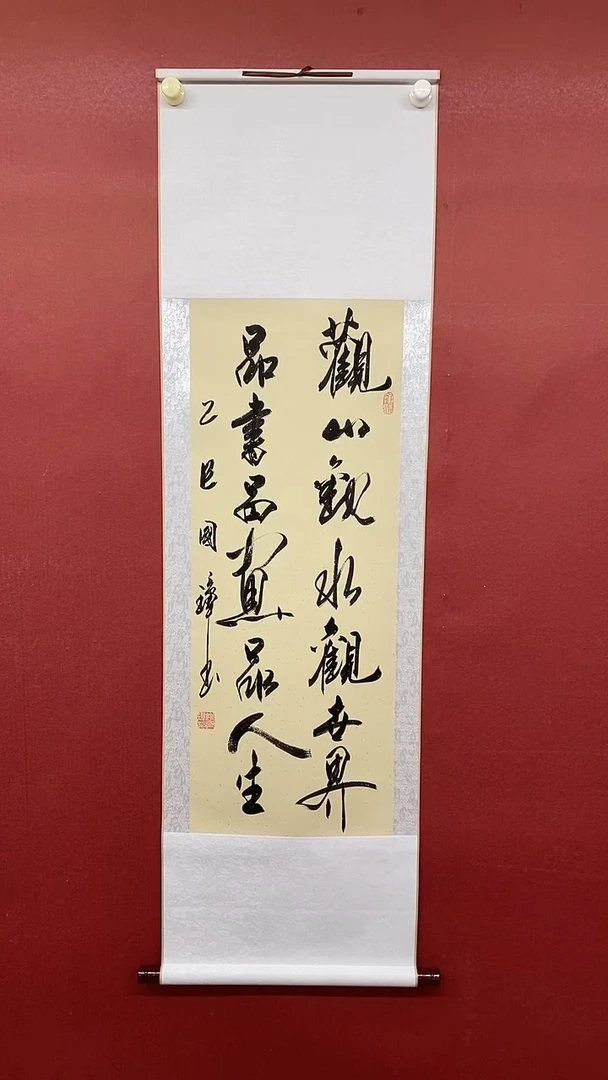 觀山觀水觀世界
品書品畫品人生
乙巳國璋书